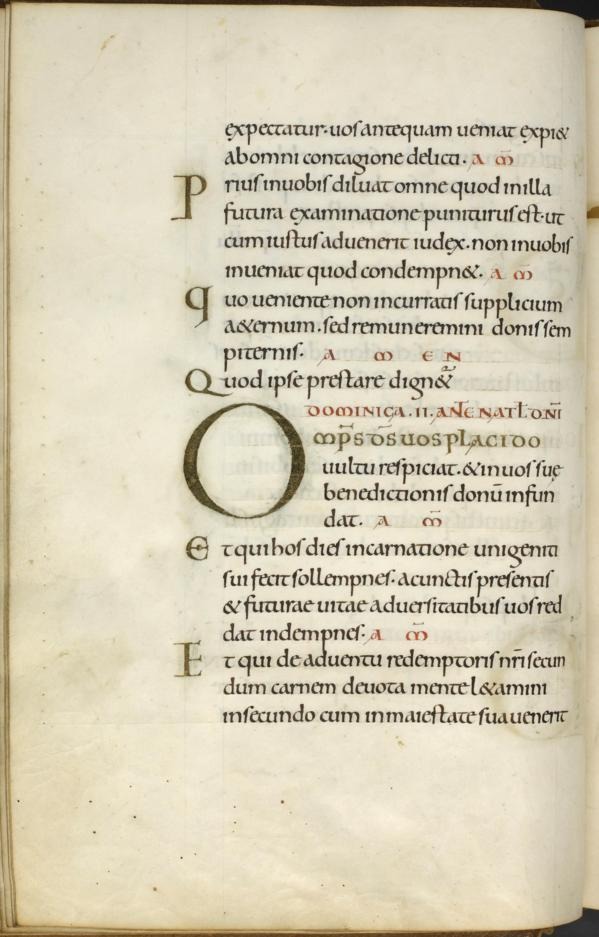 expectatur· uos antequam ueniat expi&
ab omni contagione delicti. A M̄
Prius in uobis diluat omne quod in illa
futura examinatione puniturus est· ut
cum iustus aduenerit iudex. non in uobis
inueniat quod condempn&. A M̄
quo ueniente non incurratis supplicium
a&ernum. sed remuneremini donis sem
piternis· A M E N
Quod ipse prestare dign&ur
DOMINICA .II. ANTE NATL̄ DN̄I
OMP̄S DS̄ UOS PLACIDO
uultu respiciat. & in uos suę
benedictionis donū infun
dat. A M̄
Et qui hos dies incarnatione unigeniti
sui fecit sollempnes· a cunctis presentis
& futurae uitae aduersitatibus uos red
dat indempnes· A M̄
Et qui de aduentu redemptoris nr̄i secun
dum carnem deuota mente l&amini
in secundo cum in maiestate sua uenerit